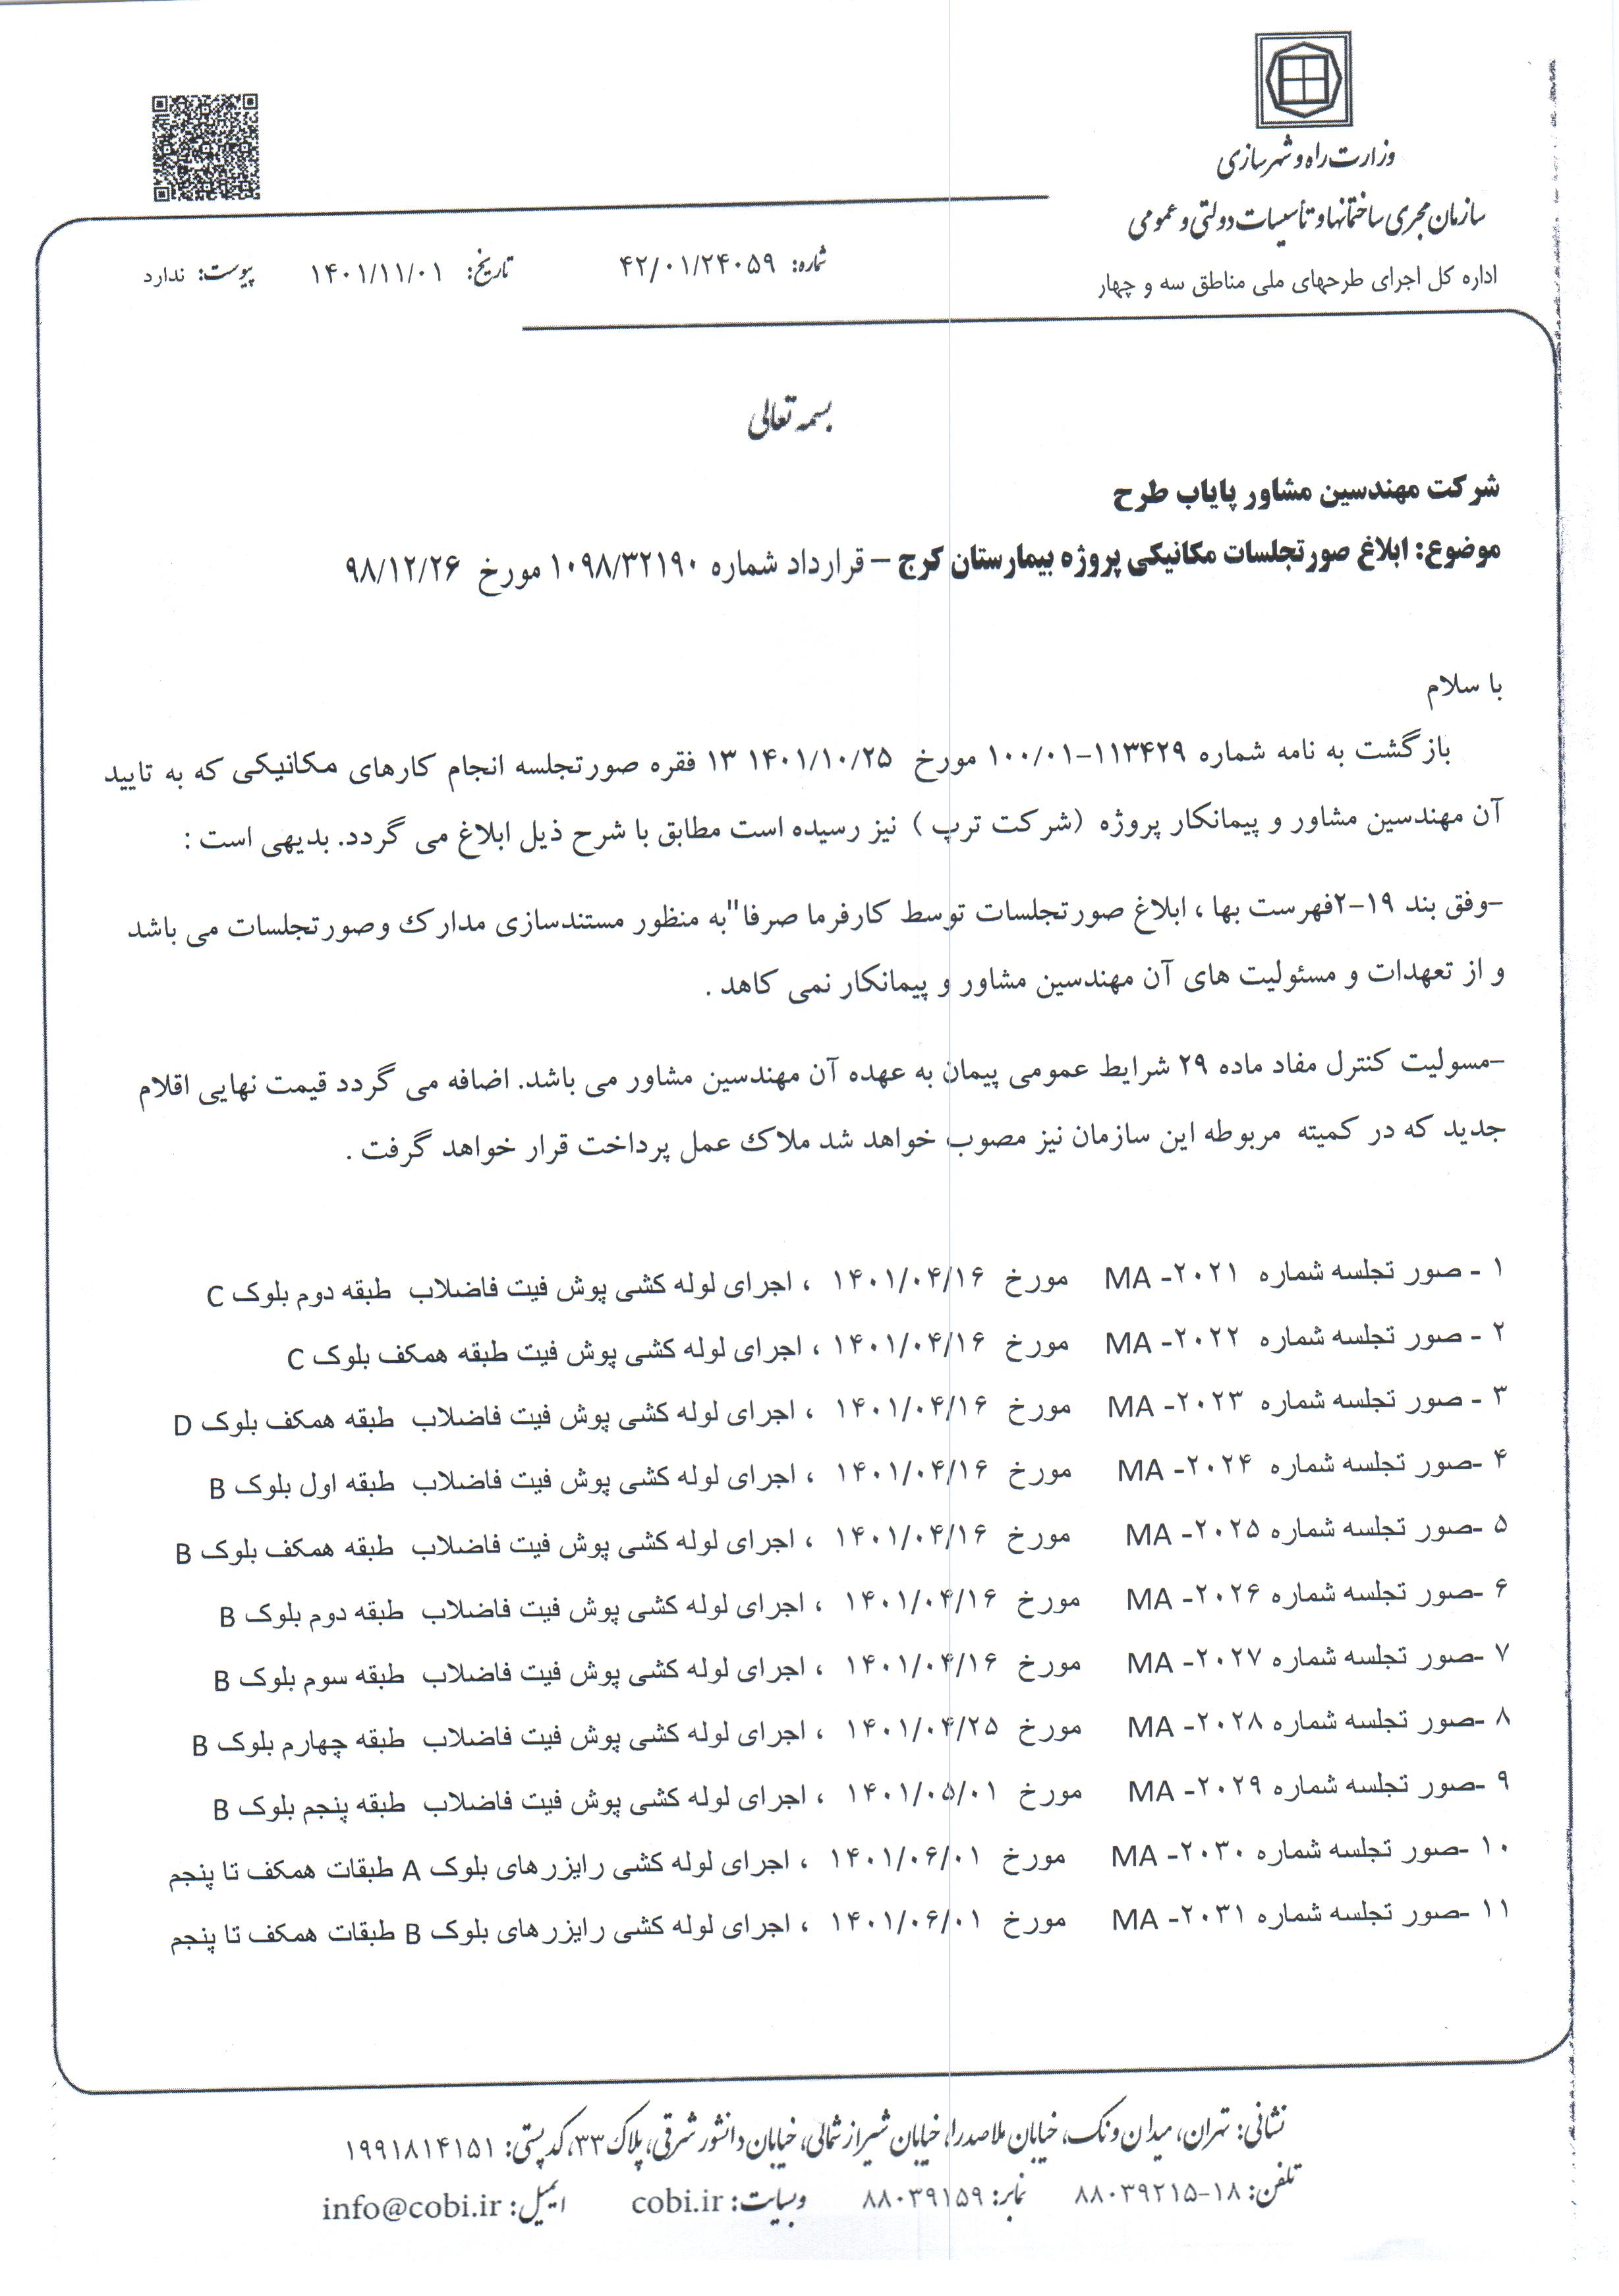 وزارت راه و شهرسازی
سازمان مجری ساختمانها و تأسیسات دولتی و عمومی
اداره کل اجرای طرحهای ملی مناطق سه و چهار
شماره: ۴۲/۰۱/۲۴۰۵۹
تاریخ: ۱۴۰۱/۱۱/۰۱
پیوست: ندارد
بسمه تعالی
شرکت مهندسین مشاور پایاب طرح
موضوع: ابلاغ صورتجلسات مکانیکی پروژه بیمارستان کرج – قرارداد شماره ۱۰۹۸/۳۲۱۹۰ مورخ ۹۸/۱۲/۲۶
با سلام
بازگشت به نامه شماره ۱۱۳۴۲۹-۱۰۰/۰۱ مورخ ۱۴۰۱/۱۰/۲۵ ۱۳ فقره صورتجلسه انجام کارهای مکانیکی که به تایید
آن مهندسین مشاور و پیمانکار پروژه (شرکت ترپ ) نیز رسیده است مطابق با شرح ذیل ابلاغ می گردد. بدیهی است :
-وفق بند ۱۹-۲فهرست بها ، ابلاغ صورتجلسات توسط کارفرما صرفا"به منظور مستندسازی مدارک وصورتجلسات می باشد
و از تعهدات و مسئولیت های آن مهندسین مشاور و پیمانکار نمی کاهد .
-مسولیت کنترل مفاد ماده ۲۹ شرایط عمومی پیمان به عهده آن مهندسین مشاور می باشد. اضافه می گردد قیمت نهایی اقلام
جدید که در کمیته مربوطه این سازمان نیز مصوب خواهد شد ملاک عمل پرداخت قرار خواهد گرفت .
۱ - صور تجلسه شماره MA -۲۰۲۱ مورخ ۱۴۰۱/۰۴/۱۶ ، اجرای لوله کشی پوش فیت فاضلاب طبقه دوم بلوک C
۲ - صور تجلسه شماره MA -۲۰۲۲ مورخ ۱۴۰۱/۰۴/۱۶ ، اجرای لوله کشی پوش فیت طبقه همکف بلوک C
۳ - صور تجلسه شماره MA -۲۰۲۳ مورخ ۱۴۰۱/۰۴/۱۶ ، اجرای لوله کشی پوش فیت فاضلاب طبقه همکف بلوک D
۴ -صور تجلسه شماره MA -۲۰۲۴ مورخ ۱۴۰۱/۰۴/۱۶ ، اجرای لوله کشی پوش فیت فاضلاب طبقه اول بلوک B
۵ -صور تجلسه شماره MA -۲۰۲۵ مورخ ۱۴۰۱/۰۴/۱۶ ، اجرای لوله کشی پوش فیت فاضلاب طبقه همکف بلوک B
۶ -صور تجلسه شماره MA -۲۰۲۶ مورخ ۱۴۰۱/۰۴/۱۶ ، اجرای لوله کشی پوش فیت فاضلاب طبقه دوم بلوک B
۷ -صور تجلسه شماره MA -۲۰۲۷ مورخ ۱۴۰۱/۰۴/۱۶ ، اجرای لوله کشی پوش فیت فاضلاب طبقه سوم بلوک B
۸ -صور تجلسه شماره MA -۲۰۲۸ مورخ ۱۴۰۱/۰۴/۲۵ ، اجرای لوله کشی پوش فیت فاضلاب طبقه چهارم بلوک B
۹ -صور تجلسه شماره MA -۲۰۲۹ مورخ ۱۴۰۱/۰۵/۰۱ ، اجرای لوله کشی پوش فیت فاضلاب طبقه پنجم بلوک B
۱۰ -صور تجلسه شماره MA -۲۰۳۰ مورخ ۱۴۰۱/۰۶/۰۱ ، اجرای لوله کشی رایزرهای بلوک A طبقات همکف تا پنجم
۱۱ -صور تجلسه شماره MA -۲۰۳۱ مورخ ۱۴۰۱/۰۶/۰۱ ، اجرای لوله کشی رایزرهای بلوک B طبقات همکف تا پنجم
نشانی: تهران، میدان ونک، خیابان ملاصدرا، خیابان شیراز شمالی، خیابان دانشور شرقی، پلاک ۳۳، کد پستی: ۱۹۹۱۸۱۴۱۵۱
تلفن: ۱۸-۸۸۰۳۹۲۱۵ نمابر: ۸۸۰۳۹۱۵۹ وبسایت: cobi.ir ایمیل: info@cobi.ir